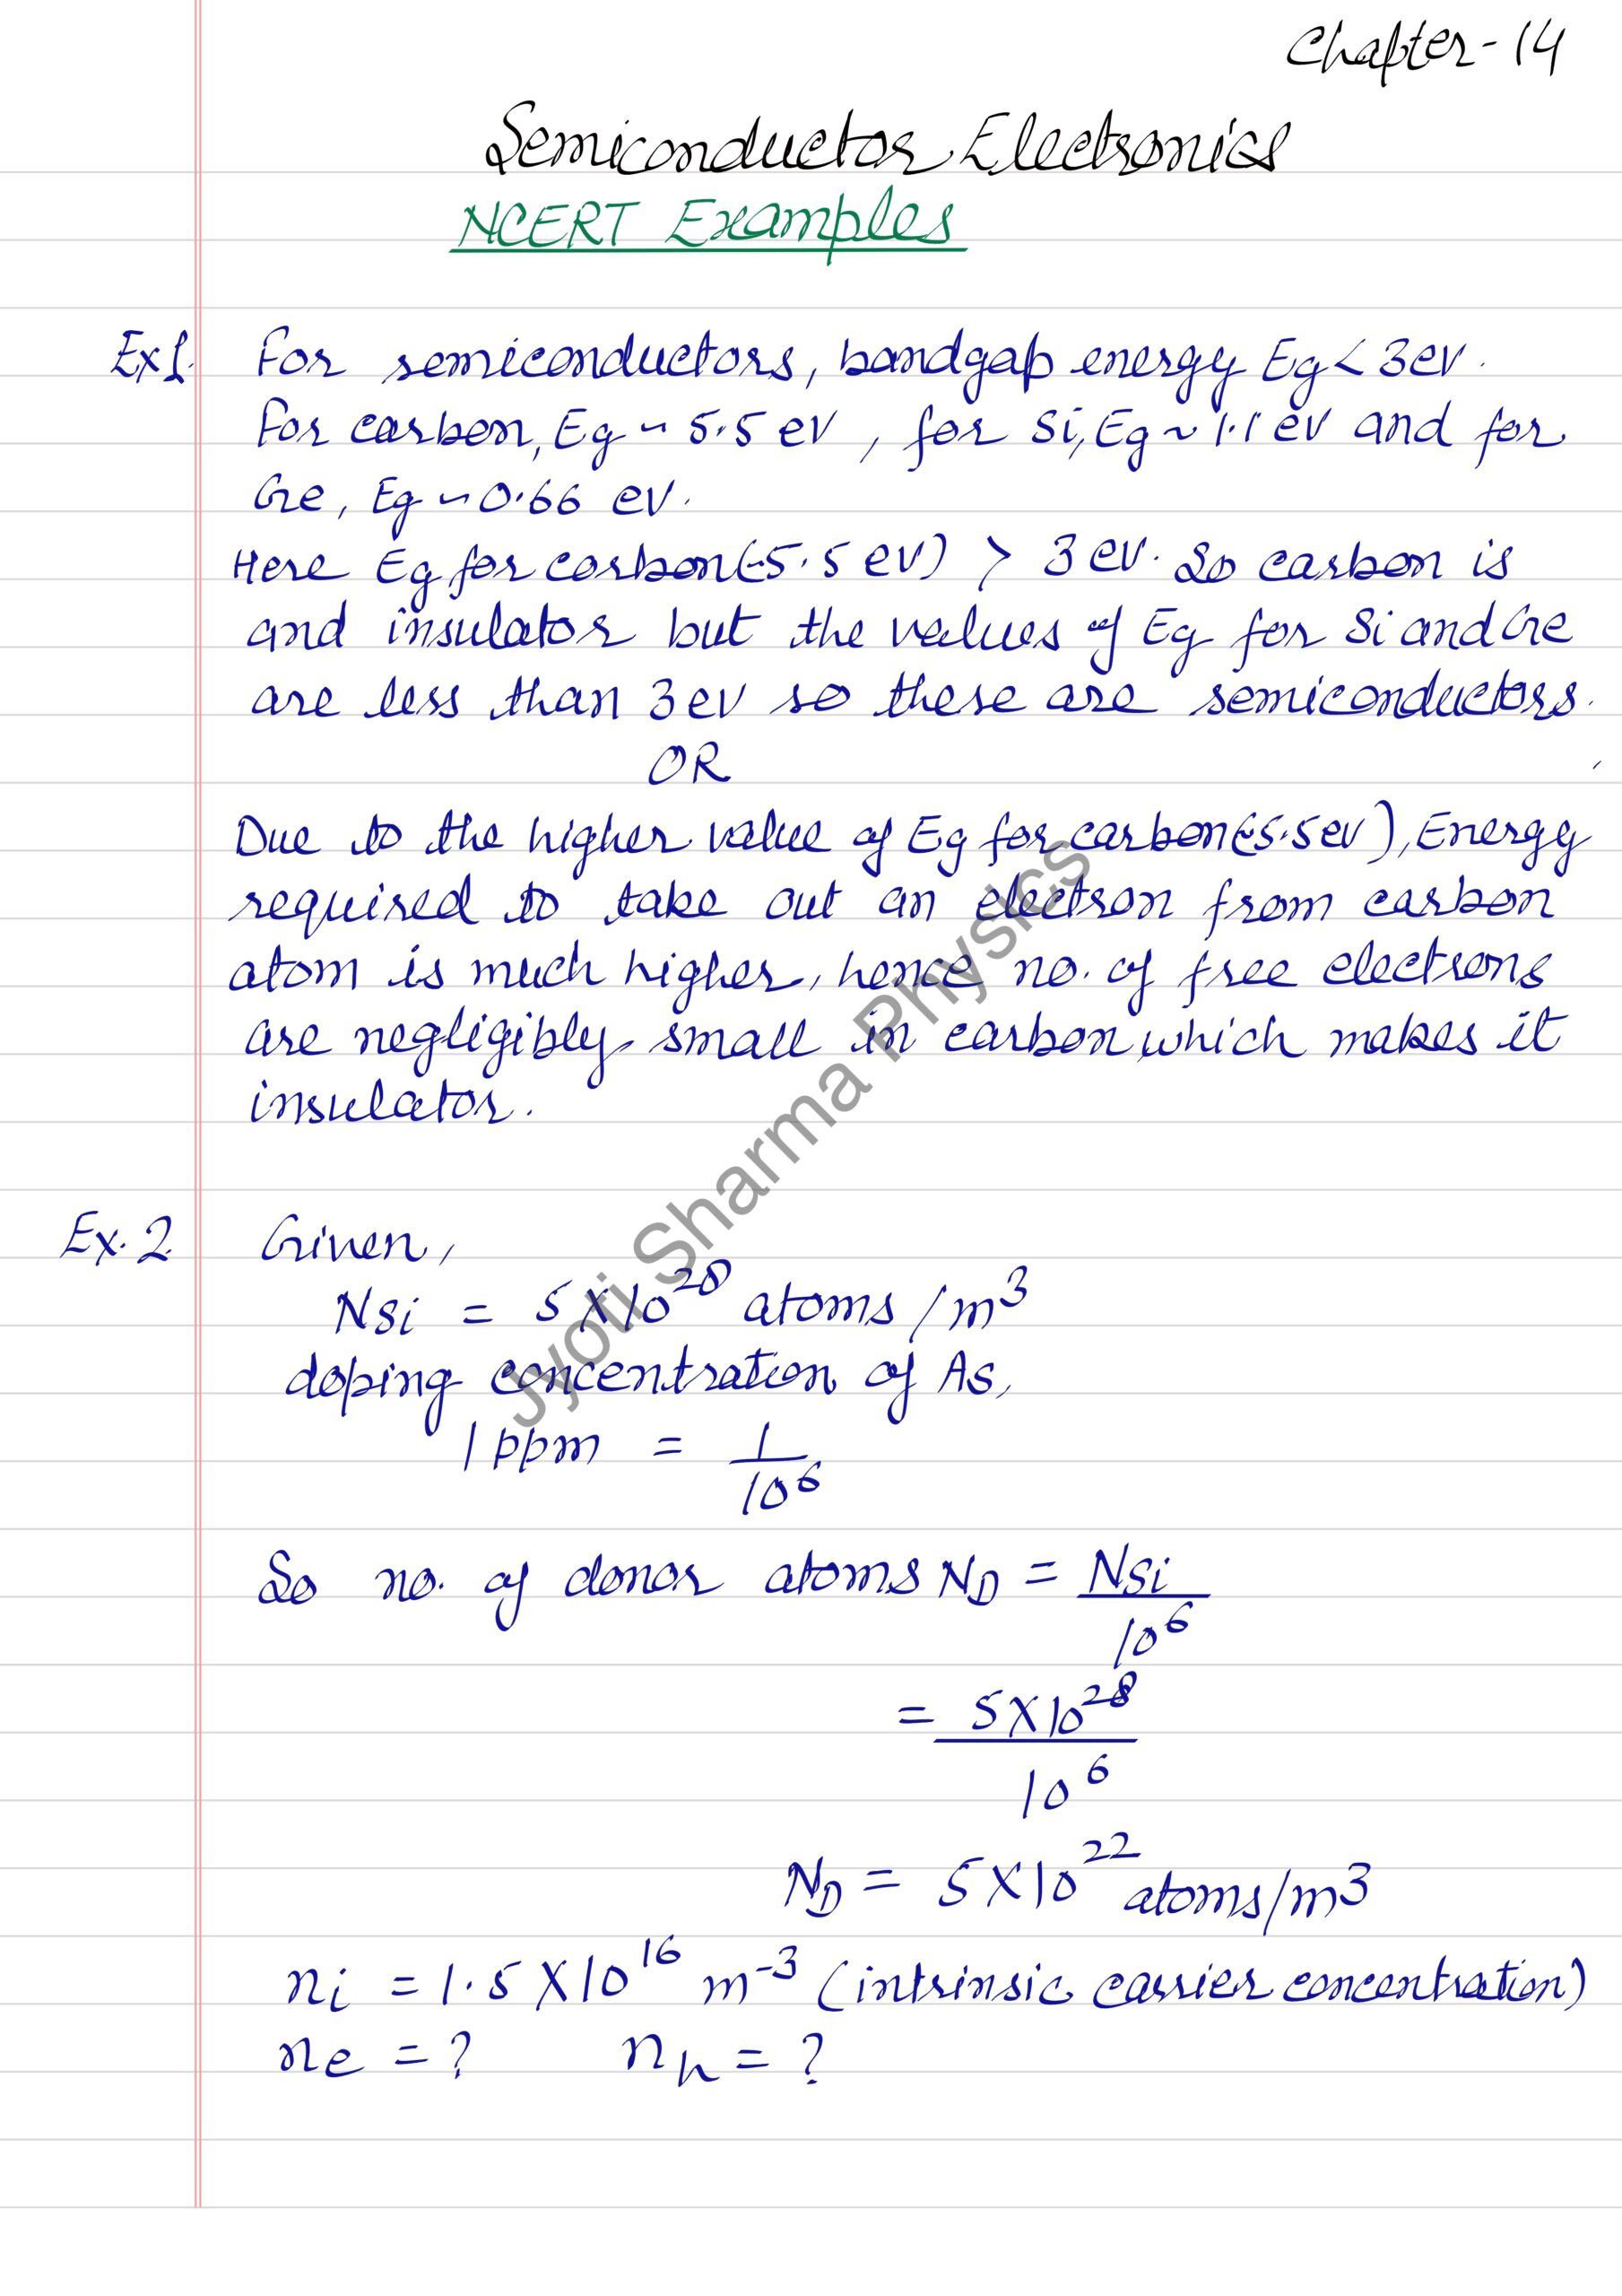 Chapter-14
Semiconductor Electronics
NCERT Examples
Ex1. For semiconductors, bandgap energy Eg < 3ev.
For carbon, Eg ~ 5.5 ev, for Si, Eg ~ 1.1 ev and for
Ge, Eg ~ 0.66 ev.
Here Eg for carbon(~5.5 ev) > 3 ev. So carbon is
and insulator but the values of Eg for Si and Ge
are less than 3 ev so these are semiconductors.
OR
Due to the higher value of Eg for carbon(~5.5ev), Energy
required to take out an electron from carbon
atom is much higher, hence no. of free electrons
are negligibly small in carbon, which makes it
insulator.
Ex. 2 Given,
NSi = 5 X 10^28 atoms/m^3
doping concentration of As,
1 ppm = 1/10^6
So no. of donor atoms N_D = NSi/10^6
= 5X10^28/10^6
N_D = 5X10^22 atoms/m3
ni = 1.5 X10^16 m^-3 (intrinsic carrier concentration)
ne = ? nh = ?
Jyoti Sharma Physics